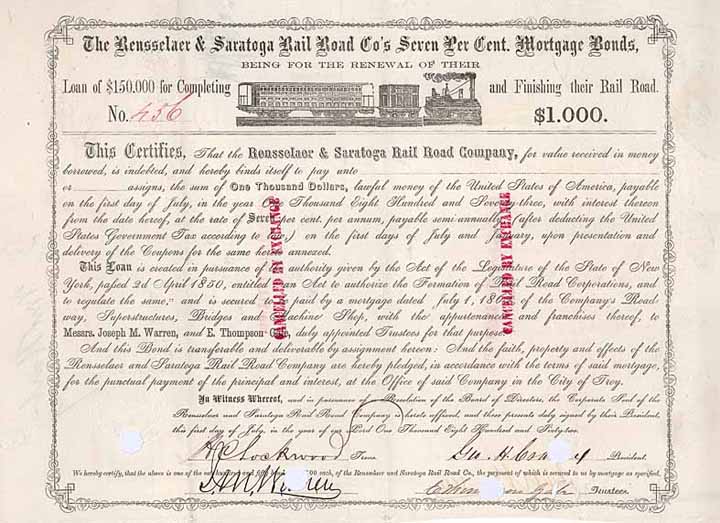 The Rensselaer & Saratoga Rail Road Co's Seven Per Cent. Mortgage Bonds,
BEING FOR THE RENEWAL OF THEIR
Loan of $150.000 for Completing and Finishing their Rail Road.
No. 456 $1.000.
This Certifies, That the Rensselaer & Saratoga Rail Road Company, for value received in money
borrowed, is indebted, and hereby binds itself to pay unto
or assigns, the sum of One Thousand Dollars, lawful money of the United States of America, payable
on the first day of July, in the year One Thousand Eight Hundred and Seventy-three, with interest thereon
from the date hereof, at the rate of Seven per cent. per annum, payable semi-annually (after deducting the United
States Government Tax according to ) on the first days of July and January, upon presentation and
delivery of the Coupons for the same hereto annexed.
This Loan is created in pursuance of the authority given by the Act of the Legislature of the State of New
York, passed 2d April 1850, entitled "An Act to authorize the Formation of Rail Road Corporations, and
to regulate the same," and is secured to be paid by a mortgage dated July 1, of the Company's Road-
way, Superstructures, Bridges and Machine Shop, with the appurtenances and franchises thereof, to
Messrs. Joseph M. Warren, and E. Thompson Gale, duly appointed Trustees for that purpose.
And this Bond is transferable and deliverable by assignment hereon: And the faith, property and effects of the
Rensselaer and Saratoga Rail Road Company are hereby pledged, in accordance with the terms of said mortgage,
for the punctual payment of the principal and interest, at the Office of said Company in the City of Troy.
In Witness Whereof, and in pursuance of a Resolution of the Board of Directors, the Corporate Seal of the
Rensselaer and Saratoga Rail Road Company is hereto affixed, and these presents duly signed by their President,
this first day of July, in the year of our Lord One Thousand Eight Hundred and
Lockwood Treas. Geo. H. President.
We hereby certify, that the above is one of the one hundred and fifty Bonds each, of the Rensselaer and Saratoga Rail Road Co., the payment of which is secured to us by mortgage as specified.
Trustees.
CANCELLED BY EXCHANGE
CANCELLED BY EXCHANGE